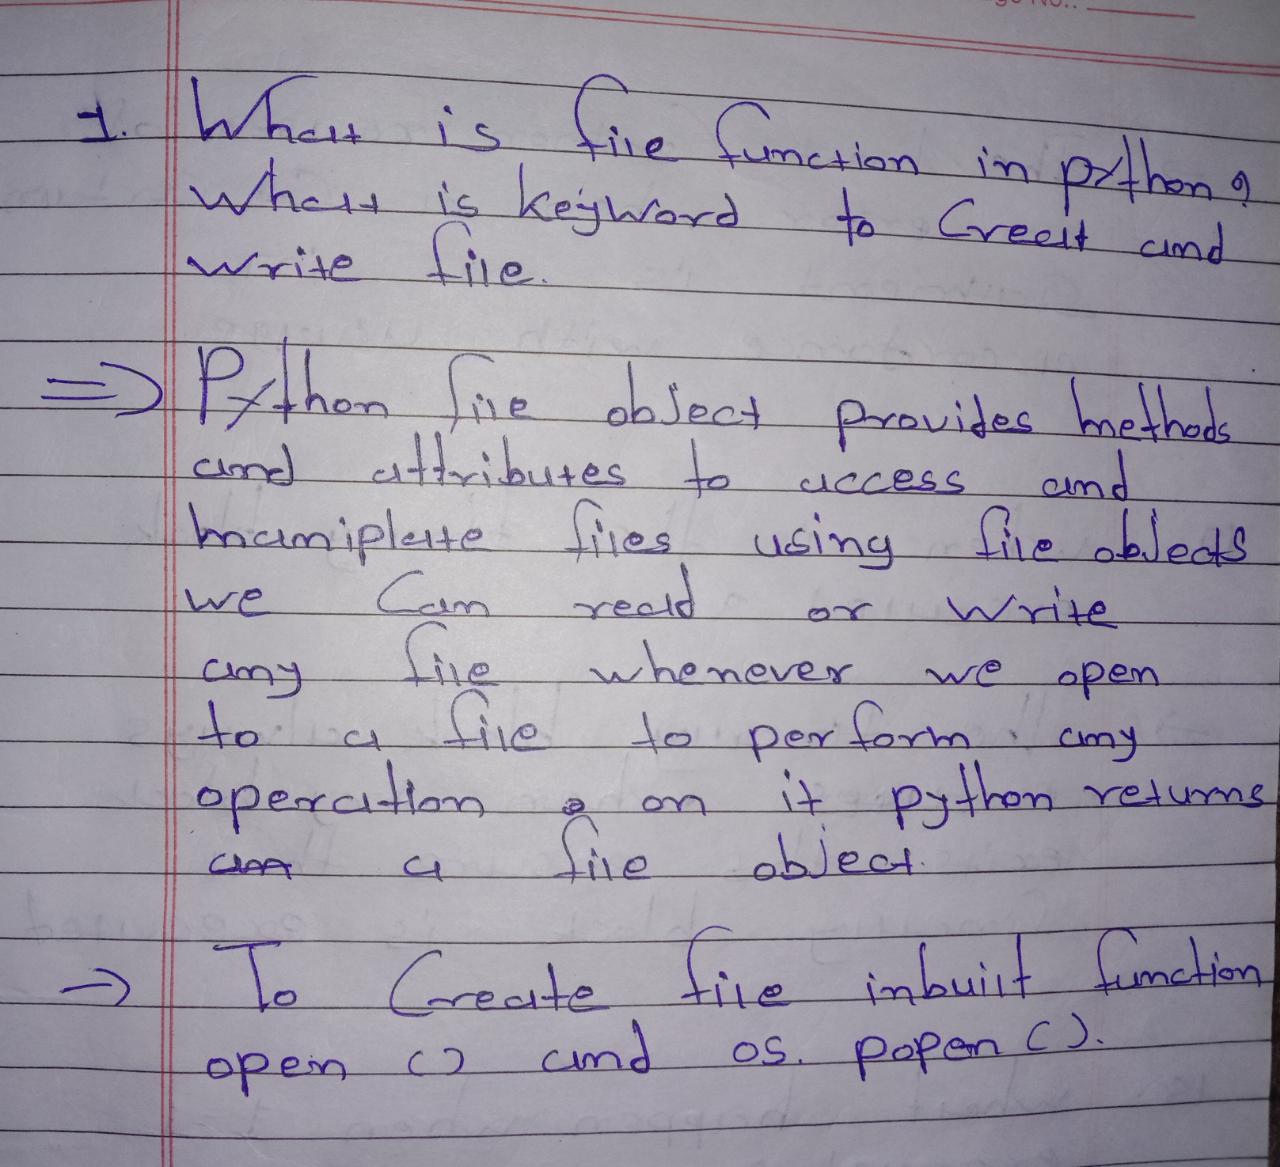 1. What is file function in python?
What is keyword to Creat and
write file.
=> Python file object provides methods
and attributes to access and
maniplate files using file objects
we Can read or write
any file whenever we open
to a file to perform any
operation on it python returns
a file object.
-> To Create file inbuilt function
open () and os. popen ().